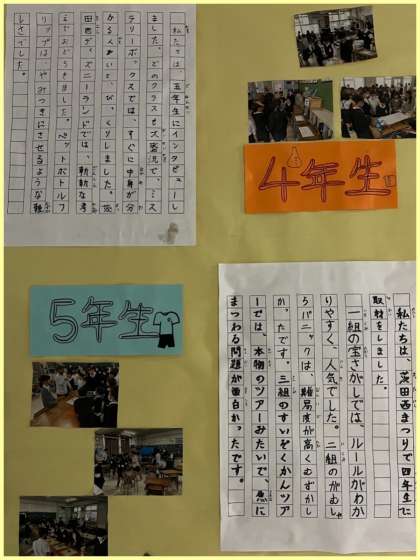 私たちは、五年生にインタビューし
ました。どのクラスも大盛況で、ミス
テリーボックスでは、すぐに中身が分
かる人がいて、びっくりしました。茨
田西ディズニーランドでは、斬新な考
えでおどろきました。ペットボトルフ
リップは、やみつきにさせるような難
しさでした。
4年生
5年生
私たちは、茨田西まつりで四年生に
取材をしました。
一組の宝さがしでは、ルールがわか
りやすく、人気でした。二組のがむしゃ
らパニックは、難易度が高くむずかし
かったです。三組のすいぞくかんツア
ーでは、本物のツアーみたいで、魚に
まつわる問題が面白かったです。